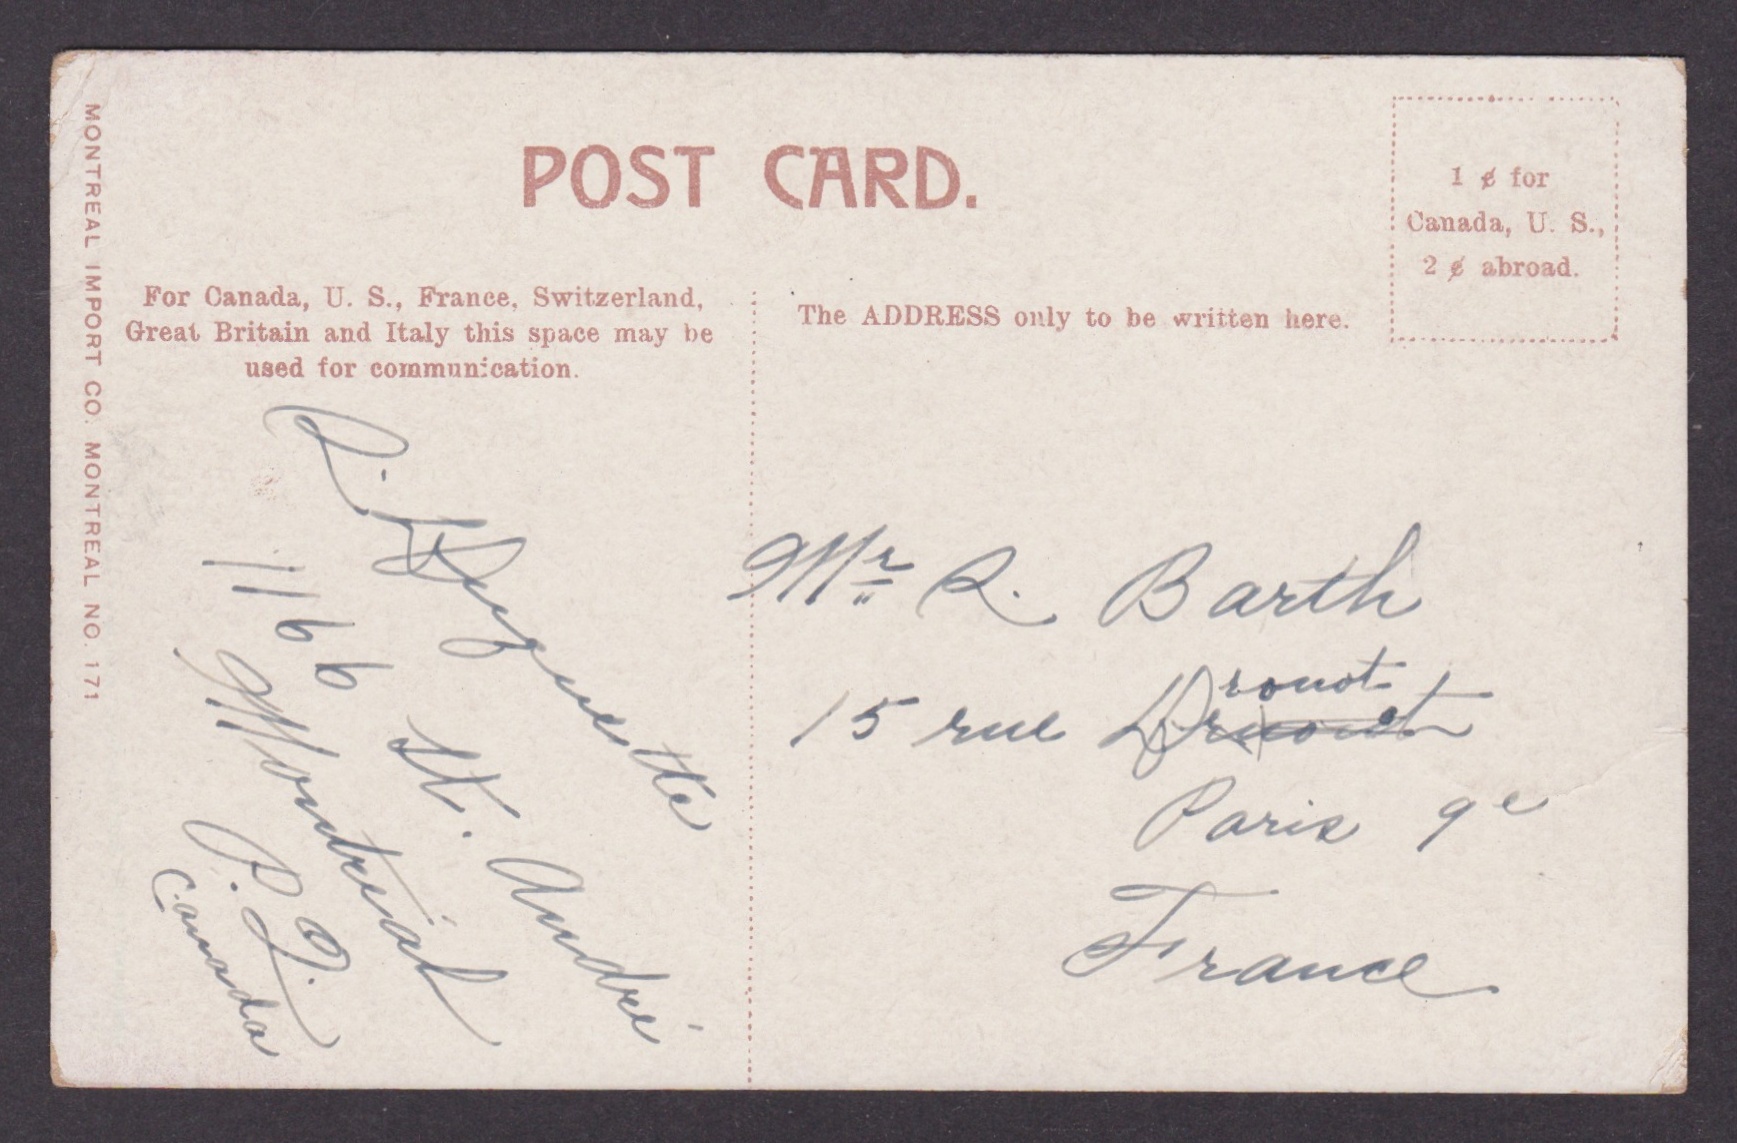 MONTREAL IMPORT CO. MONTREAL NO. 171
POST CARD.
1 ¢ for
Canada, U. S.,
2 ¢ abroad.
For Canada, U. S., France, Switzerland,
Great Britain and Italy this space may be
used for communication.
The ADDRESS only to be written here.
1166 St. André
Montreal
P. Q.
Canada
Mr R. Barth
ronot
15 rue
Paris 9e
France